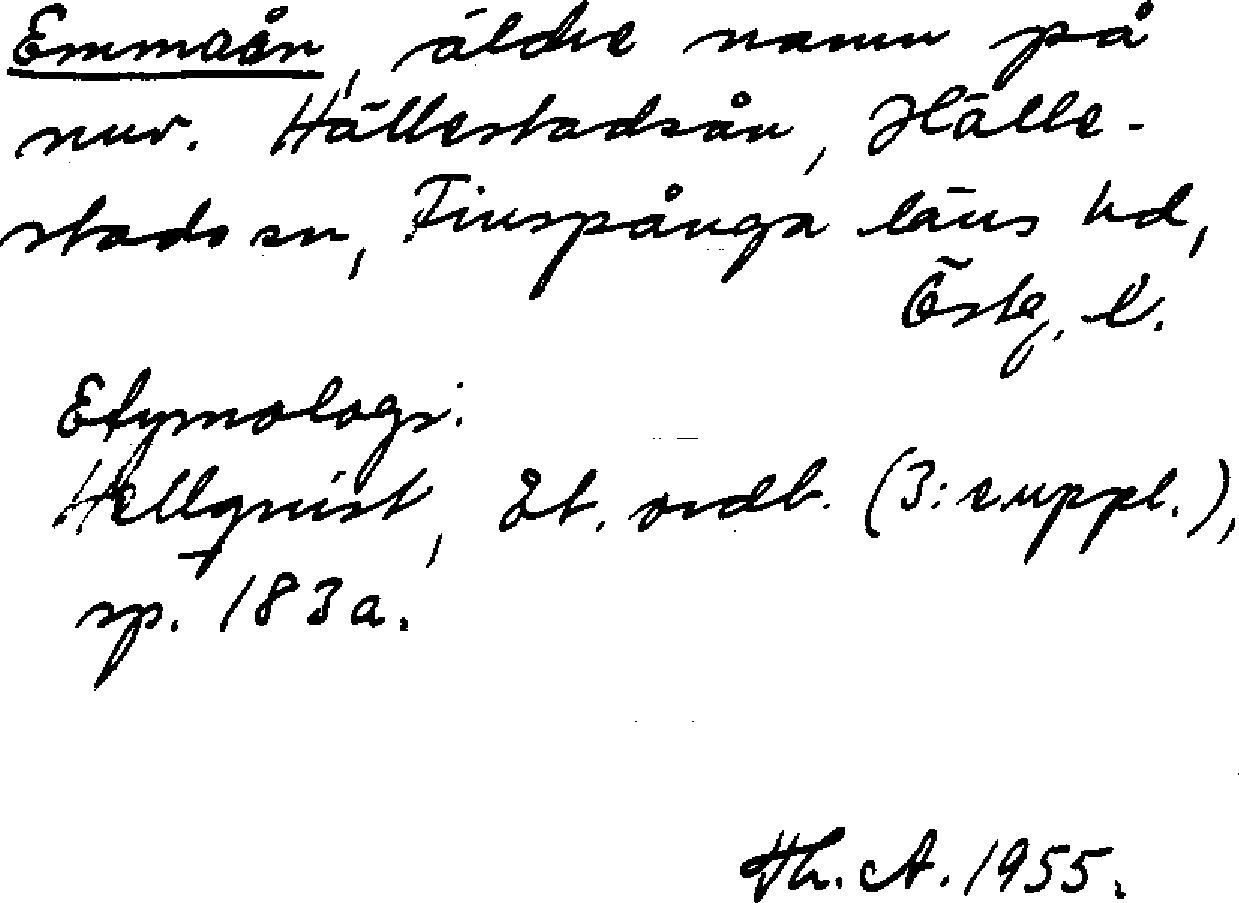 Emmaån, äldre namn på
nuv. Hällestadsån, Hälle-
stads sn, Finspånga läns hd,
Östg. l.
Etymologi.
Hellquist, Et. ordb. (3: e uppl.),
sp. 183a.
Th. A. 1955.